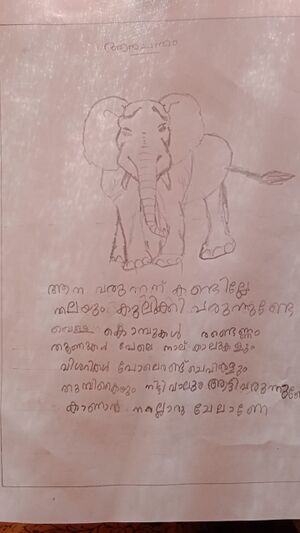 ആനചന്തം
ആന വരുന്നത് കണ്ടില്ലേ
തലയും കുലുക്കി വരുന്നുണ്ടേ
വെള്ള കൊമ്പുകൾ രണ്ടെണ്ണം
തൂണുകൾ പോലെ നാല് കാലുകളും
വിശറികൾ പോലെരണ്ട് ചെവികളും
തുമ്പികൈയും നീട്ടി വാലും ആട്ടിവരുന്നുണ്ടേ
കാണാൻ നല്ലൊരു ചേലാണേ